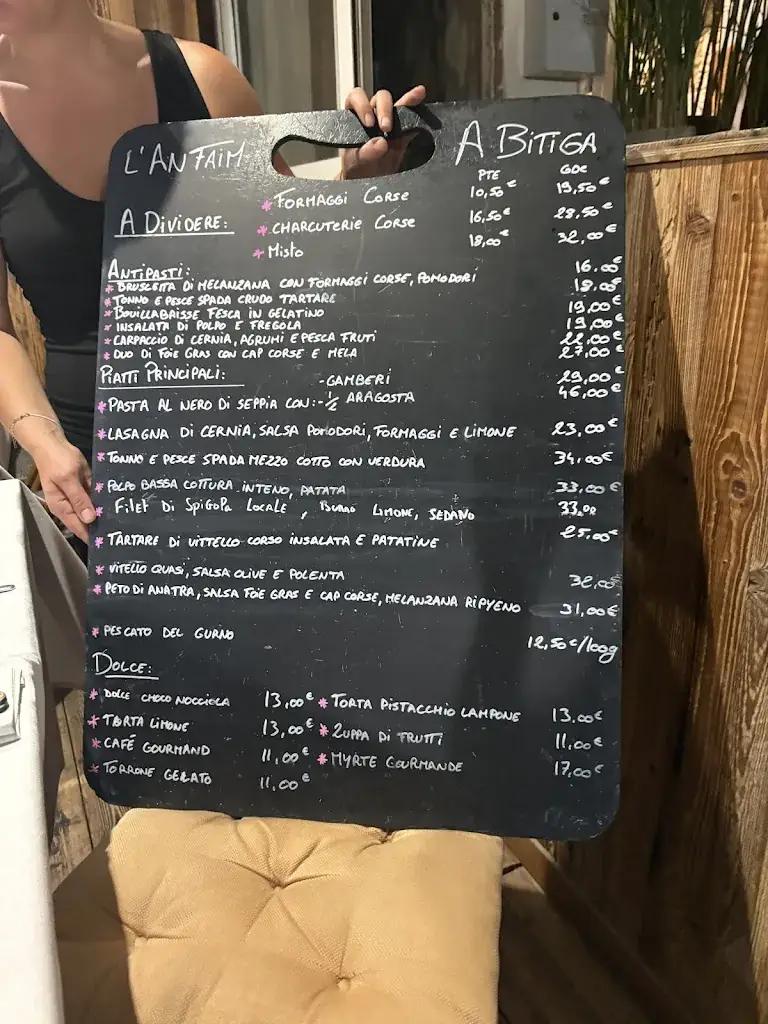 L'ANFAIM A BITIGA
PTE GDE
A DIVIDERE:
* FORMAGGI CORSE 10,50€ 19,50€
* CHARCUTERIE CORSE 16,50€ 28,50€
* MISTO 18,00€ 32,00€
ANTIPASTI:
* BRUSCEITA DI MELANZANA CON FORMAGGI CORSE, POMODORI 16.00€
* TONNO E PESCE SPADA CRUDO TARTARE 18.00€
* BOUILLABAISSE FESCA IN GELATINO 19,00€
* INSALATA DI POLPO E FREGOLA 19,00€
* CARPACCIO DI CERNIA, AGRUMI E PESCA FRUTI 22,00€
* DUO DI FOIE GRAS CON CAP CORSE E MELA 27,00€
PIATTI PRINCIPALI:
- GAMBERI 29,00€
* PASTA AL NERO DI SEPPIA CON: - ½ ARAGOSTA 46,00€
* LASAGNA DI CERNIA, SALSA POMODORI, FORMAGGI E LIMONE 23,00€
* TONNO E PESCE SPADA MEZZO COTTO CON VERDURA 34,00€
* POLPO BASSA COTTURA INTENO, PATATA 33,00€
* FILET DI SPIGOLA LOCALE, BURRO LIMONE, SEDANO 33,00
* TARTARE DI VITTELLO CORSO INSALATA E PATATINE 25,00€
* VITELIO QUASI, SALSA OLIVE E POLENTA 32,00€
* PETO DI ANATRA, SALSA FOIE GRAS E CAP CORSE, MELANZANA RIPYENO 31,00€
* PESCATO DEL GURNO 12,50€/100g
DOLCE:
* DOLCE CHOCO NOCCIOLA 13,00€ * TORTA PISTACCHIO LAMPONE 13.00€
* TARTA LIMONE 13,00€ * ZUPPA DI FRUTTI 11,00€
* CAFÉ GOURMAND 11,00€ * MYRTE GOURMANDE 17,00€
* TORRONE GELATO 11,00€